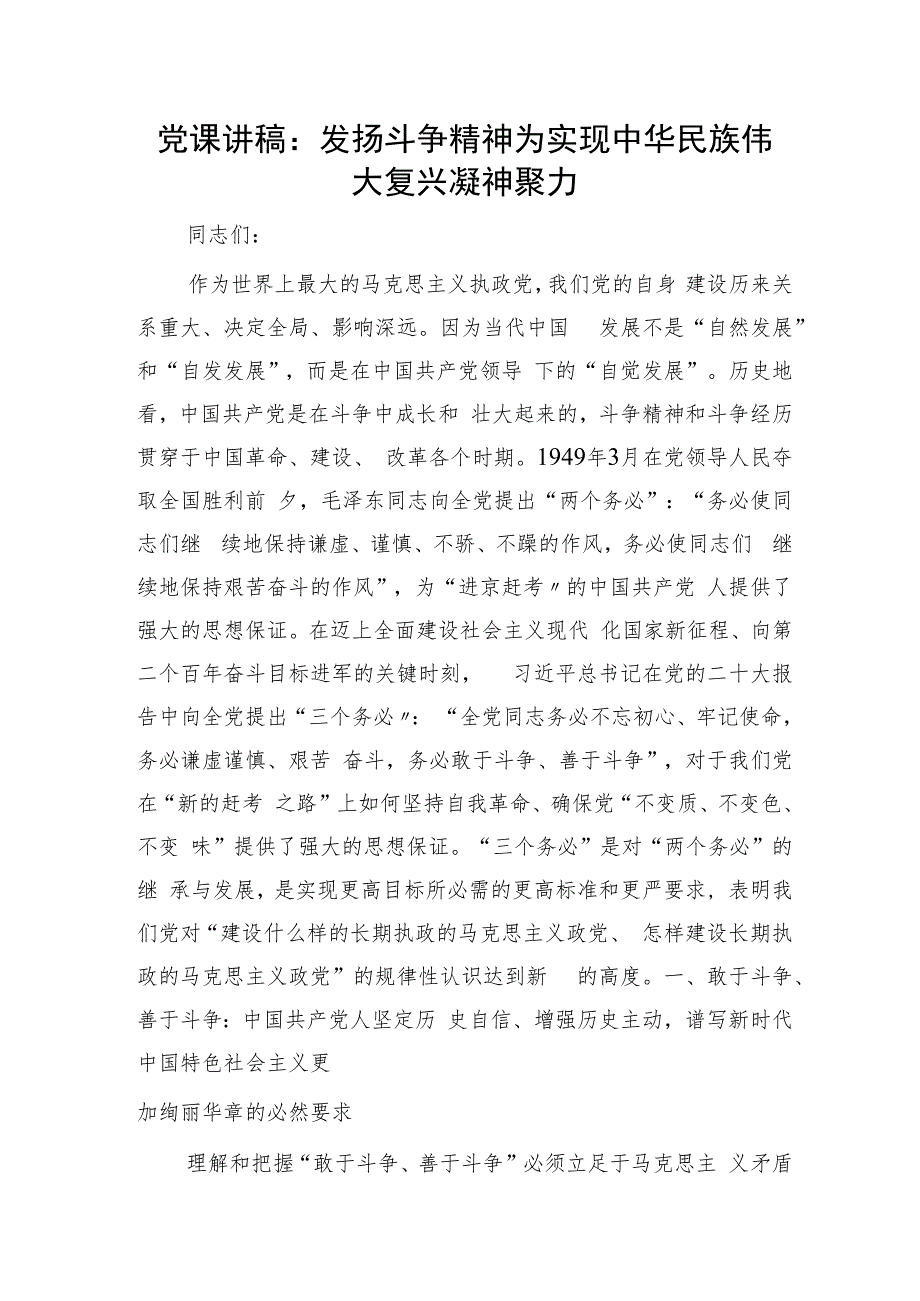 党课讲稿：发扬斗争精神为实现中华民族伟
大复兴凝神聚力
同志们：
作为世界上最大的马克思主义执政党，我们党的自身 建设历来关
系重大、决定全局、影响深远。因为当代中国 发展不是“自然发展”
和“自发发展”，而是在中国共产党领导 下的“自觉发展”。历史地
看，中国共产党是在斗争中成长和 壮大起来的，斗争精神和斗争经历
贯穿于中国革命、建设、 改革各个时期。1949年3月在党领导人民夺
取全国胜利前 夕，毛泽东同志向全党提出“两个务必”：“务必使同
志们继 续地保持谦虚、谨慎、不骄、不躁的作风，务必使同志们 继
续地保持艰苦奋斗的作风”，为“进京赶考〃的中国共产党 人提供了
强大的思想保证。在迈上全面建设社会主义现代 化国家新征程、向第
二个百年奋斗目标进军的关键时刻， 习近平总书记在党的二十大报
告中向全党提出“三个务必〃： “全党同志务必不忘初心、牢记使命，
务必谦虚谨慎、艰苦 奋斗，务必敢于斗争、善于斗争”，对于我们党
在“新的赶考 之路”上如何坚持自我革命、确保党“不变质、不变色、
不变 味”提供了强大的思想保证。“三个务必”是对“两个务必”的
继 承与发展，是实现更高目标所必需的更高标准和更严要求，表明我
们党对“建设什么样的长期执政的马克思主义政党、 怎样建设长期执
政的马克思主义政党”的规律性认识达到新 的高度。一、敢于斗争、
善于斗争：中国共产党人坚定历 史自信、增强历史主动，谱写新时代
中国特色社会主义更
加绚丽华章的必然要求
理解和把握“敢于斗争、善于斗争”必须立足于马克思主 义矛盾